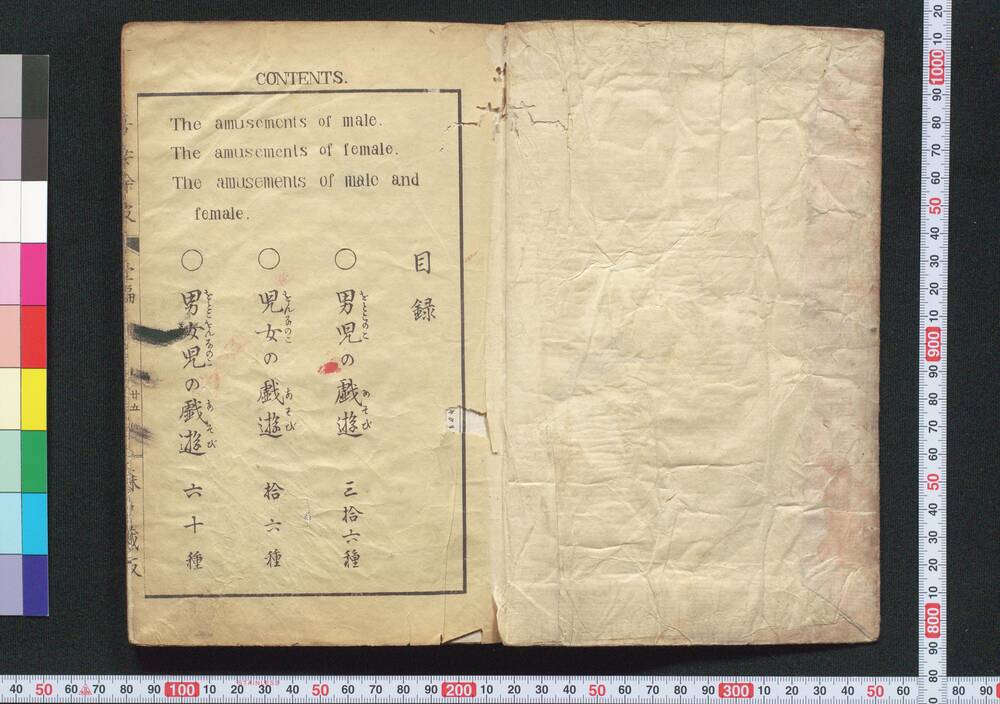 CONTENTS.
The amusements of male.
The amusements of female.
The amusements of male and
female.
目録
○男児の戯遊 三拾六種
○児女の戯遊 拾六種
○男女児の戯遊 六十種
廿五